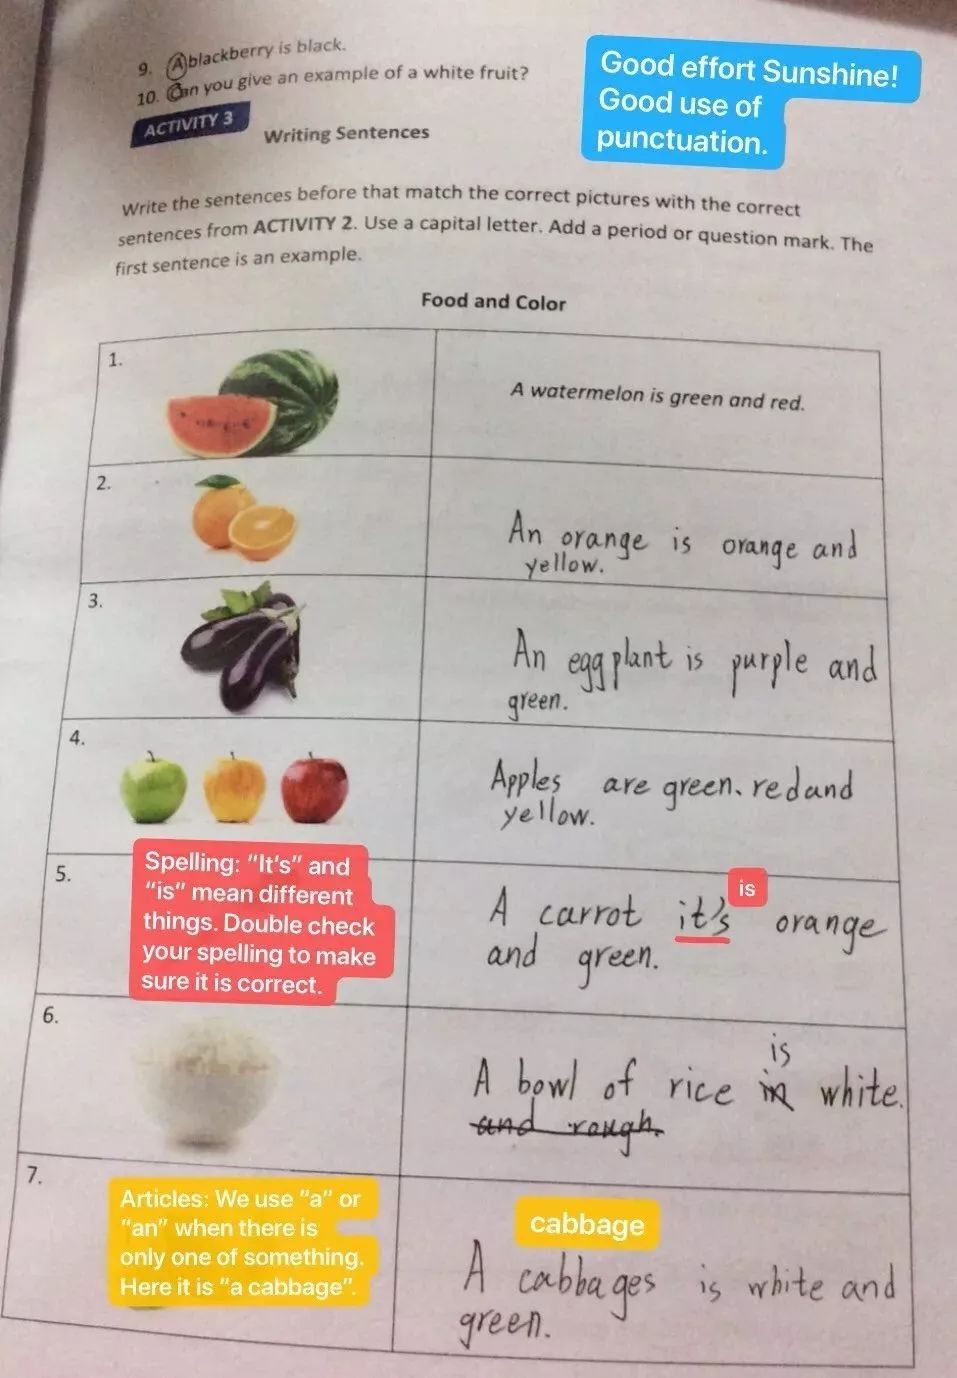 9. A blackberry is black.
10. Can you give an example of a white fruit?
Good effort Sunshine!
Good use of
punctuation.
ACTIVITY 3
Writing Sentences
Write the sentences before that match the correct pictures with the correct
sentences from ACTIVITY 2. Use a capital letter. Add a period or question mark. The
first sentence is an example.
Food and Color
1.
A watermelon is green and red.
2.
An orange is orange and
yellow.
3.
An eggplant is purple and
green.
4.
Apples are green、red and
yellow.
5.
Spelling: "It's" and
"is" mean different
things. Double check
your spelling to make
sure it is correct.
is
A carrot it's orange
and green.
6.
is
A bowl of rice in white.
and rough.
7.
Articles: We use "a" or
"an" when there is
only one of something.
Here it is "a cabbage".
cabbage
A cabbages is white and
green.